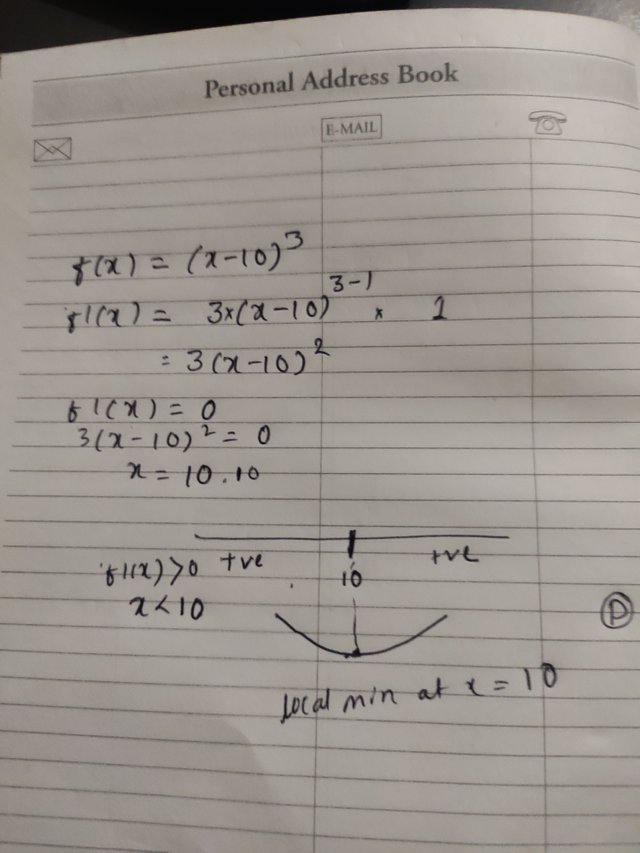 Personal Address Book
E-MAIL
f(x) = (x-10)^3
f'(x) = 3×(x-10)^3-1 × 1
= 3(x-10)^2
f'(x) = 0
3(x-10)^2 = 0
x = 10.10
f'(x) > 0 +ve 10 +ve
x < 10
P
local min at x = 10